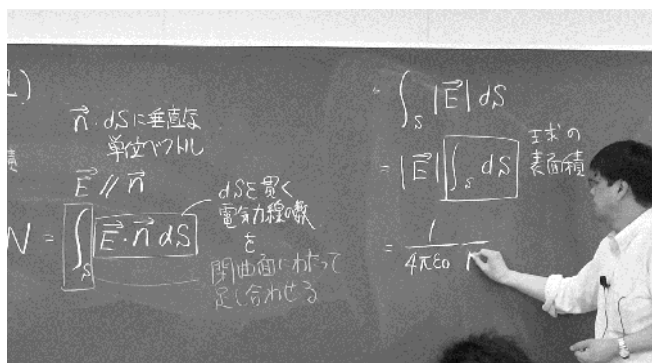 n⃗: dSに垂直な
単位ベクトル
E⃗ // n⃗
N = ∫_S E⃗・n⃗ dS
dSを貫く
電気力線の数
を
閉曲面にわたって
足し合わせる
∫_S |E⃗| dS
= |E⃗| ∫_S dS
球の
表面積
= 1/4πε0